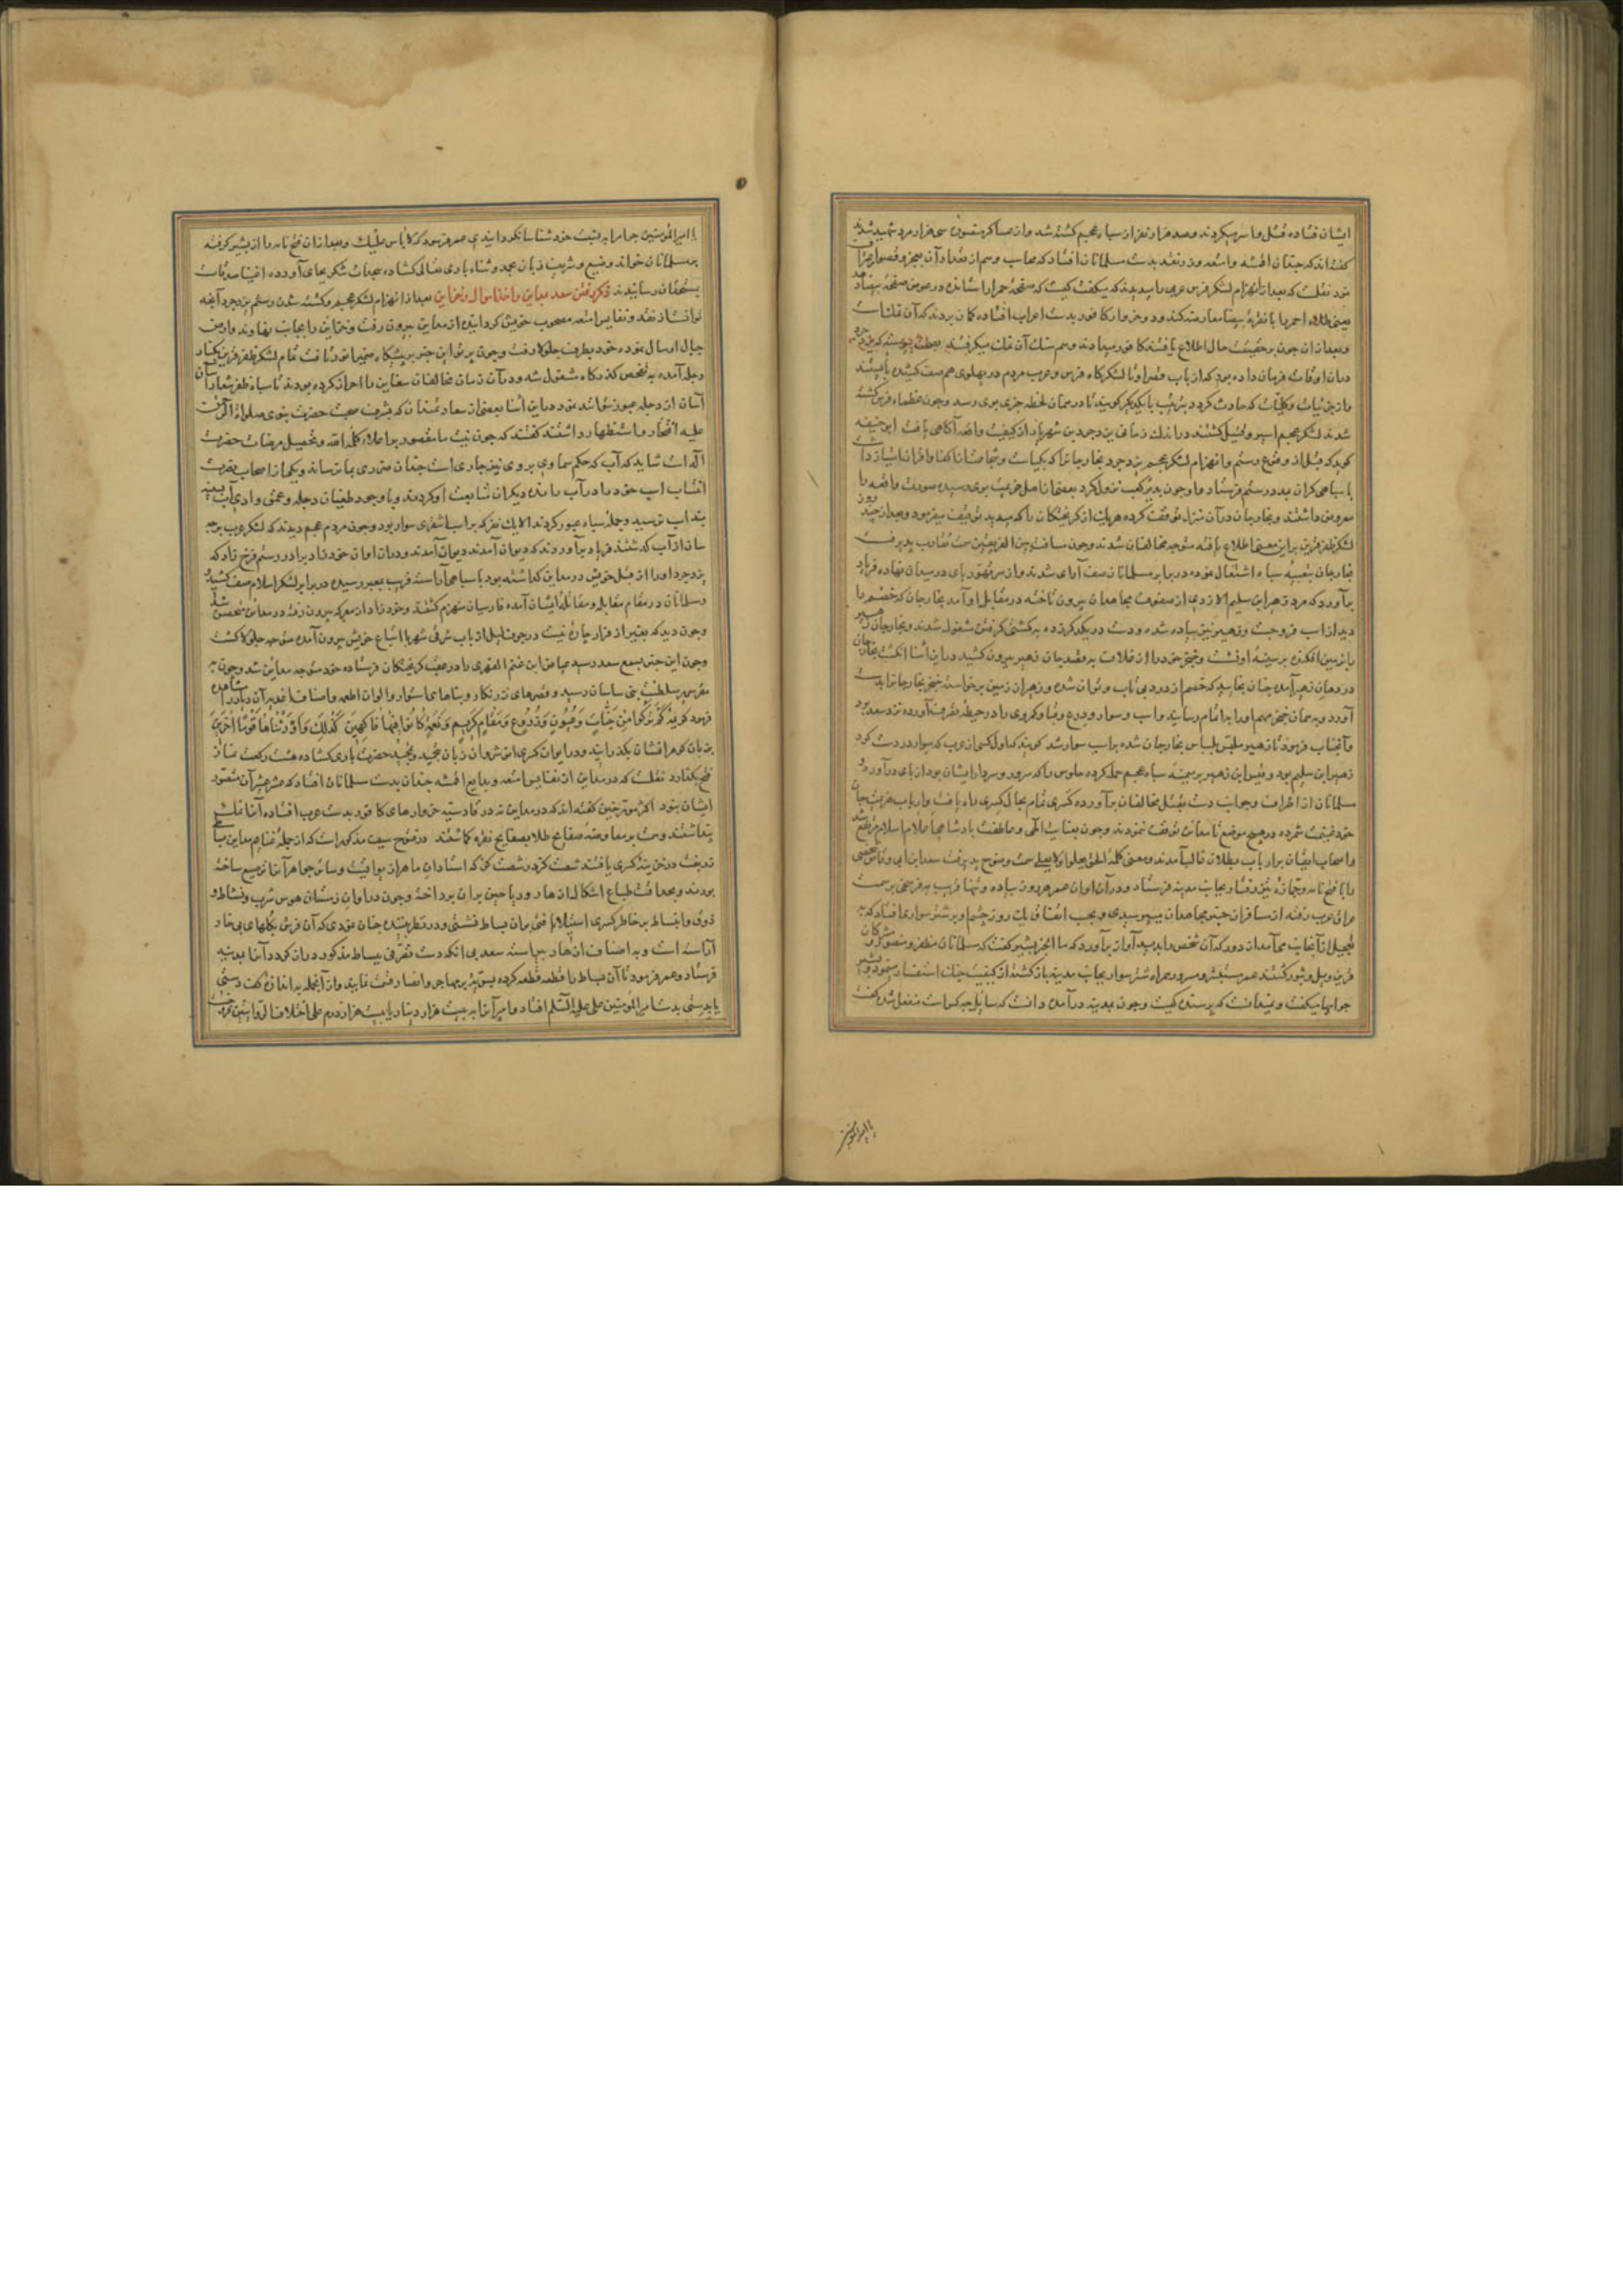 ایشان فتاده قتل و اسر میکردند و صد هزار نفر از سپاه عجم کشته شد و از عساکر سی هزار مرد شهید شدند
گفته‌اند که چندان اقمشه و امتعه و زر و نقد بدست مسلمانان افتاد که محاسب وهم از تعداد آن بعجز و قصور اعتراف
نمود نقلست که بعد از انهزام لشکر فرس عربی را دیدند که میگفت کیست که صفحه حمرا را ستانده در عوض صفحه بیضا دهد
یعنی طلاء احمر را با نقره بیضا معاوضه کند و دو خروار کافور بدست اعراب افتاده گمان بردند که آن نمک است
و بعد از آن چون بر حقیقت حال اطلاع یافتند کافور میدادند و هم سنگ آن نمک میگرفتند
در آن اوقات فرمان داده بود که از باب قصر او تا لشکرگاه فرس و عرب مردم در پهلوی هم صف کشیده بایستند
و از جزئیات و کلیات که حادث گردد بترتیب با یکدیگر گویند تا در همان لحظه خبر بوی رسد و چون عظماء فرس کشته
شدند لشکر عجم اسیر و قتیل گشتند در اندک زمانی یزدجرد بن شهریار از کیفیت واقعه آگاهی یافت ابو حنیفه
گوید که قبل از وقوع رستم و انهزام لشکر عجم یزدجرد نخارجانرا که بکیاست و شجاعت از اکفا و اقران امتیاز داشت
با سپاهی گران بمدد رستم فرستاد و او چون بدیر کعب نزول کرد بعضی از اهل هزیمت بوی رسیده صورت واقعه را
معروض داشتند و نخارجان در آن منزل توقف کرده هر یک از گریختگان را که میدید توقیف میفرمود و بعد از چند روز
لشکر ظفر قرین بر این معنی اطلاع یافته متوجه مخالفان شدند و چون مسافت بین الفریقین سمت تقارب پذیرفت
نخارجان بتعبیه سپاه اشتغال نموده در برابر مسلمانان صف آرای شدند و از سر تهور پای در میدان نهاده فریاد
برآورد که مرد زهیر ابن سلیم الازدی از صفوف مجاهدان بیرون تاخته در مقابل او آمد نخارجان که خصم را
دید از اسب فروجست و زهیر نیز پیاده شده و دست در یکدیگر زده به کشتی گرفتن مشغول شدند و نخارجان زهیر
را بزمین افکنده بر سینه او نشست و خنجر خود را از غلاف به قصد جان زهیر بیرون کشید در این اثنا انگشت نخارجان
در دهان زهیر آمده چنان بخایید که خصم از درد بی تاب و توان شده و زهیر از زمین برخواسته خنجر نخارجانرا بدست
آورد و به همان خنجر مهم او را به اتمام رسانید و اسب و سوار و درع و قبا و کمر وی را در حیطه تصرف آورده نزد سعد برد
و آنجناب فرمود تا زهیر ملبس بلباس نخارجان شده بر اسب سوار شد گویند که اول کسی از عرب که سوار در دست کرد
زهیر ابن سلیم بود و قیس ابن زهیر بر میمنه سپاه عجم حمله کرده جلوس را که سرور و سردار ایشان بود از پای درآورد و
مسلمانان از اطراف و جوانب دست بقتل مخالفان برآورده کسری تمام بحال کسری راه یافت و ارباب هزیمت جان
خود غنیمت شمرده در هیچ موضع تا مداین توقف ننمودند و چون بعنایت الهی و عاطفت پادشاهی اعلام اسلام مرتفع شد
و اصحاب ایمان بر ارباب بطلان غالب آمدند و معنی کلمه الحق یعلوا ولا یعلی سمت وضوح پذیرفت سعد ابن ابی وقاص شخصی
را با فتح نامه و جمازه تیز رفتار بجانب مدینه فرستاد و در آن اوان عمر هر روز پیاده و تنها قریب به فرسخی بر سمت
عراق عرب رفته از مسافران خبر مجاهدان میپرسیدی و بحسب اتفاق یک روز چشم او بر شتر سواری افتاد که به
تعجیل از آنجانب می‌آمد از دور که آن شخص را بدید آواز برآورد که ما الخبر بشیر گفت که مسلمانان مظفر و منصور و مشرکان
قرین ویل و ثبور گشتند عمر مستبشر و مسرور همراه شتر سوار بجانب مدینه بازگشته از کیفیت جنک استفسار مینمود و بشیر
جوابها میگفت و نمیدانست که پرسنده کیست و چون بمدینه درآمدند دانست که سائل چه کس است منفعل شده گفت
یا امیرالمؤمنین
یا امیرالمؤمنین چرا مرا به نسبت خود شناسا نگردانیدی عمر فرمود که لا باس علیک و بعد از آن فتح نامه را از بشیر گرفته
بر مسلمانان خواند و وضیع و شریف زبان بحمد و ثناء باری تعالی گشاده سجدات شکر بجای آوردند اغنیا صدقات
بمستحقان رسانیدند ذکر رفتن سعد بمداین و اخذ اموال و خزاین بعد از انهزام لشکر عجم و کشته شدن رستم یزدجرد آنچه
توانست از نقد و نفایس امتعه مصحوب خویش گردانیده از مداین بیرون رفت و خزاین را بجانب نهاوند و ارض
جبال ارسال نموده خود بطرف جلولا رفت و چون پرتو این خبر بر پیشگاه ضمیر سعد تافت تمام لشکر ظفر قرین بکنار
دجله آمده به تفحص گذرگاه مشغول شد و در آن زمان مخالفان سفاین را احراز کرده بودند تا سپاه ظفر شعار آسان
آسان از دجله عبور نتوانند نمود در این اثنا بعضی از سعادتمندان که بشرف صحبت حضرت نبوی صلوات الرحمن
علیه افتخار و استظهار داشتند گفتند که چون نیت ما مقصور بر اعلاء کلمة الله و تحصیل مرضات حضرت
اله است شاید که آب که حکم سماوی بر وی نیز جاری است چندان ضرری بما نرساند و یکی از اصحاب نصرت
انتساب اسب خود را در آب رانده دیگران متابعت او کردند و با وجود طغیان دجله و عمق وادی آسیبی
بدواب نرسید و جمله سپاه عبور کردند الا یک نفر که بر اسب اشقری سوار بود و چون مردم عجم دیدند که لشکر عرب بر چه
سان از آب گذشتند فریاد برآوردند که دیوان آمدند دیوان آمدند و در آن اوان خورزاد برادر رستم فرخ زاد که
یزدجرد او را از قبل خویش در مداین گذاشته بود با سپاهی آراسته قریب بمعبر رسیده در برابر لشکر اسلام صف کشیدند
و مسلمانان در مقام مقابله و مقاتله ایشان آمده فارسیان منهزم گشتند و خورزاد از معرکه بیرون رفته در مداین متحصن شد
و چون دید که بغیر از فرار چاره نیست در جوف لیل از باب شرقی شهر با اتباع خویش بیرون آمده متوجه جلولا گشت
و چون این خبر بسمع سعد رسید عیاض ابن غنم الفهری را در عقب گریختگان فرستاده خود متوجه مداین شد و چون به
مقر سریر سلطنت بنی ساسان رسید و قصرهای زرنگار و بناهای استوار و الوان اطعمه و اصناف اغذیه آن دیار را مشاهده
فرمود کریمه كَمْ تَرَكُوا مِنْ جَنَّاتٍ وَعُيُونٍ وَزُرُوعٍ وَمَقَامٍ كَرِيمٍ وَنَعْمَةٍ كَانُوا فِيهَا فَاكِهِينَ كَذَلِكَ وَأَوْرَثْنَاهَا قَوْمًا آخَرِينَ
بر زبان گوهر افشان بگذرانید و در ایوان کسری انوشروان زبان بتحمید و تمجید حضرت باری گشاده هشت رکعت نماز
فتح بگذارد نقلست که در مداین از نفایس امتعه و بدایع اقمشه چندان بدست مسلمانان افتاد که عشر عشیر آن متصور
ایشان نبود اکثر مورخین گفته‌اند که در مداین نه در قادسیه خروارهای کافور بدست عرب افتاده آنرا نمک
پنداشتند و سیف مذکور است که از جمله غنایم مداین بساطی
در خزینه کسری یافتند شصت گز در شصت گز که استادان ماهر از یواقیت و سائر جواهر آنرا ترصیع ساخته
بودند و بحدائت طباع اشکال ازهار و ریاحین بر آن پرداخته و چون در اوان زمستان هوس شرب و نشاط و
ذوق و انبساط بر خاطر کسری استیلا یافتی بر آن بساط نشستی و در نظر بیننده چنان نمودی که آن فرش بگلهای بی خار
آراسته است و به اصناف ازهار پیراسته سعد بی آنکه دست تصرف بر بساط مذکور دراز کردد آنرا بمدینه
فرستاد و عمر فرمود تا آن بساط را قطعه قطعه کرده بسویت بر مهاجر و انصار قسمت نمایند و از آنجمله به اندازه کف دستی
یا بدستی بدست امیرالمؤمنین علی علیه السلام افتاد و امیر آنرا به بیست هزار دینار یا بیست هزار درم علی اختلاف القولین بفروخت